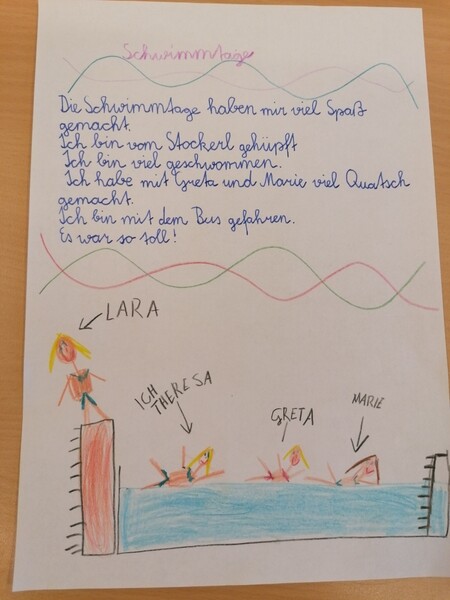 Schwimmtage
Die Schwimmtage haben mir viel Spaß
gemacht.
Ich bin vom Stockerl gehüpft
Ich bin viel geschwommen.
Ich habe mit Greta und Marie viel Quatsch
gemacht.
Ich bin mit dem Bus gefahren.
Es war so toll!
LARA
ICH
THERESA
GRETA
MARIE